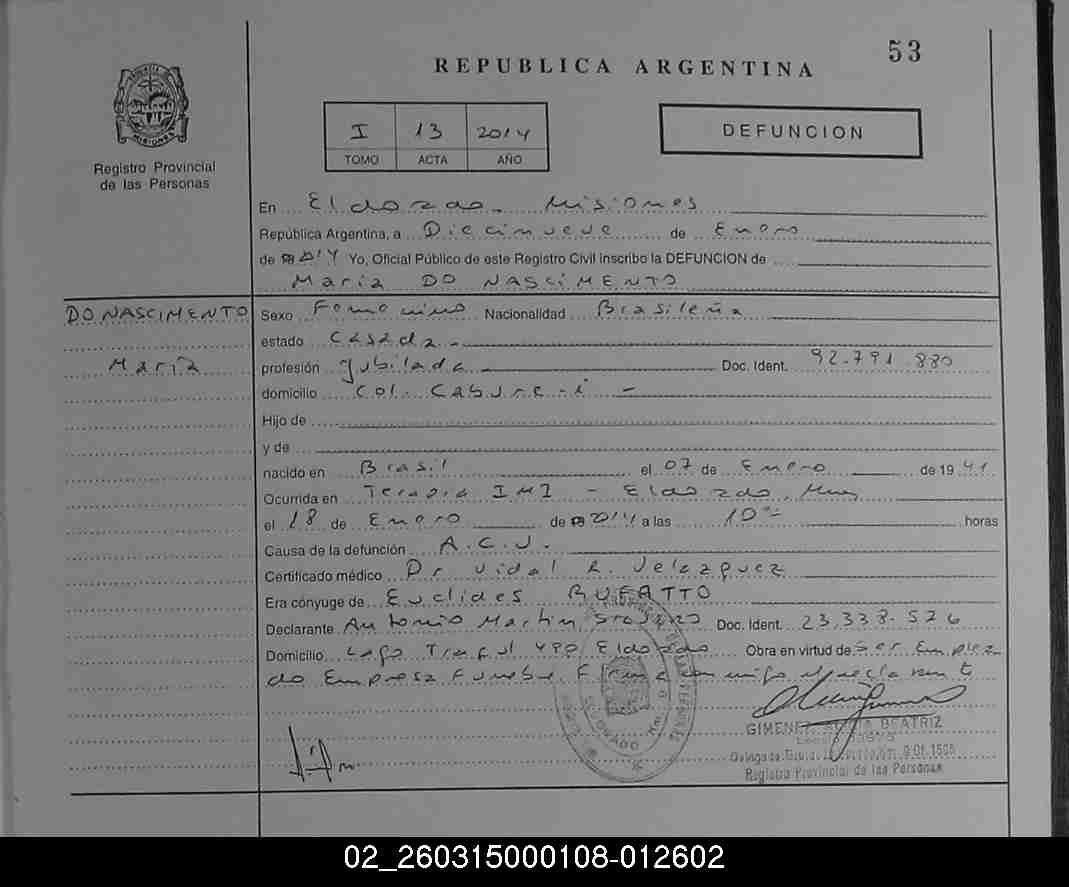 53
REPUBLICA ARGENTINA
MISIONES
Registro Provincial
de las Personas
I 13 2014
TOMO ACTA AÑO
DEFUNCION
En Eldorado - Misiones
República Argentina, a Diecinueve de Enero
de 2014 Yo, Oficial Público de este Registro Civil inscribo la DEFUNCION de
María DO NASCIMENTO
DO NASCIMENTO
María
Sexo Femenino Nacionalidad Brasileña
estado Casada -
profesión Jubilada Doc. Ident. 92.791.880
domicilio Col. Cabure-i -
Hijo de
y de
nacido en Brasil el 07 de Enero de 1941
Ocurrida en Terapia IMI - Eldorado, Mnes
el 18 de Enero de 2014 a las 10 horas
Causa de la defunción A.C.V.
Certificado médico Dr Vidal R. Velazquez
Era cónyuge de Euclides BUFATTO
Declarante Antonio Martin Doc. Ident. 23.338.526
Domicilio Lago 490 Eldorado Obra en virtud de Ser Emplea-
do Empresa Funebre Firma conmigo el declarante
GIMENEZ BEATRIZ
Registro Provincial de las Personas
02_260315000108-012602